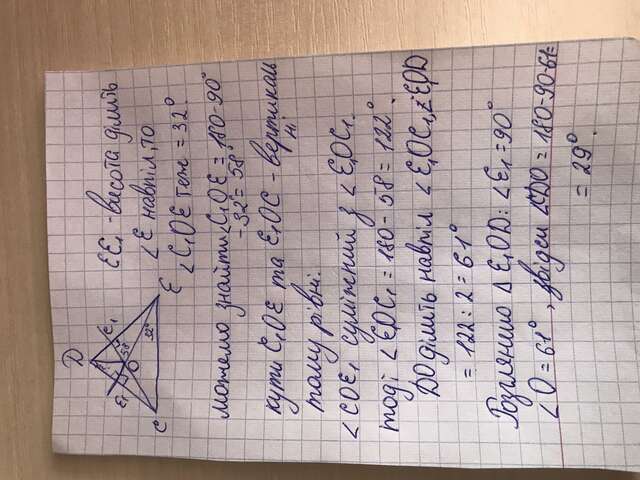 D
E₁
C₁
58
O
32°
C
E
EE₁ - висота ділить
∠E навпіл, то
∠C₁OE теж = 32°.
можемо знайти ∠C₁OE = 180-90°
-32° = 58°
кути C₁OE та E₁OC - вертикаль
ні
тому рівні.
∠COE₁ суміжний з ∠E₁OC₁.
тоді ∠E₁OC₁ = 180-58 = 122°
DO ділить навпіл ∠E₁OC₁, ∠E₁OD
= 122:2 = 61°
Розглянемо Δ E₁OD: ∠E₁ = 90°
∠O = 61°, звідси ∠CDO = 180-90-61=
= 29°.